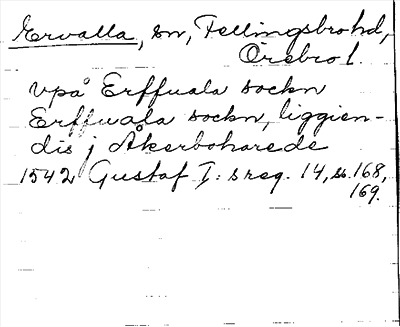 Ervalla, sn, Fellingsbrohd,
Örebro l.
vpå Erffuala sockn
Erffwala sockn, liggien-
dis j Åkerboharede
1542 Gustaf I: s reg. 14, ss. 168,
169.